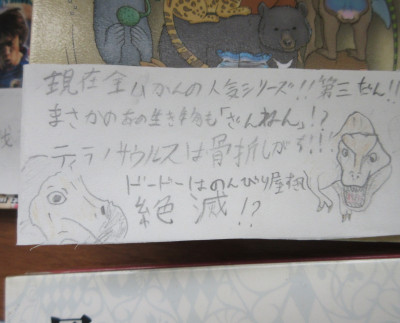 現在全八かんの人気シリーズ!!第三だん!!
まさかのあの生き物も「ざんねん」!?
ティラノサウルスは骨折しがち!!!
ドードーはのんびり屋で
絶滅!?